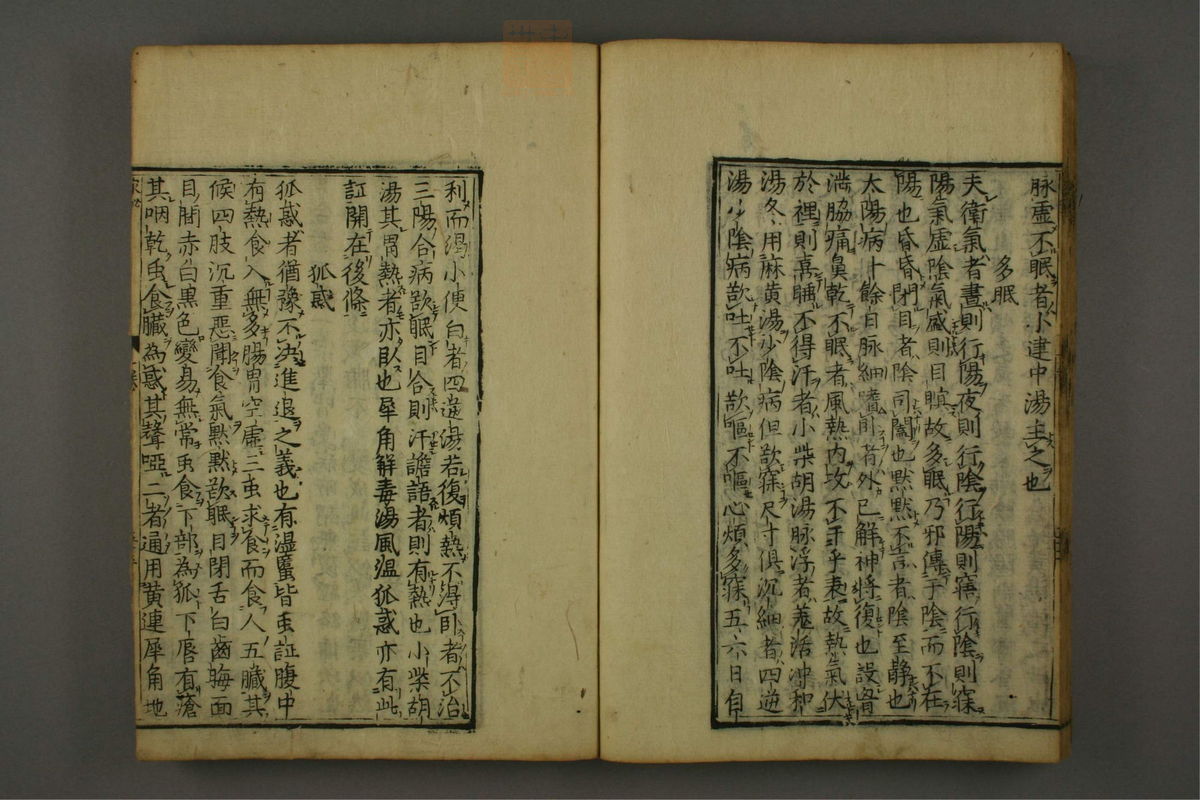 脉虚不眠者小建中湯主之也
多眠
夫衛氣者晝則行陽夜則行陰行陽則寤行陰則寐
陽氣虚陰氣盛則目瞑故多眠乃邪傳于陰而不在
陽也昏昏閉目者陰司闔也默默不言者陰至靜也
太陽病十餘日脉細嗜卧者外已解神將復也設胷
滿脇痛鼻乾不眠者風熱内攻不干乎表故熱氣伏
於裡則喜睡不得汗者小柴胡湯脉浮者羗活冲和
湯冬用麻黄湯少陰病但欲寐尺寸俱沉細者四逆
湯少陰病欲吐不吐欲嘔不嘔心煩多寐五六日自
利而渴小便白者四逆湯若復煩熱不得卧者不治
三陽合病欲眠目合則汗譫語者則有熱也小柴胡
湯其胃熱者亦臥也犀角解毒湯風溫狐惑亦有此
証開在後條
狐惑
狐惑者猶豫不决進退之義也有溫䘌皆虫証腹中
有熱食入無多腸胃空虚三虫求食而食人五臟其
候四肢沉重惡聞食氣默默欲眠目閉舌白齒晦面
目間赤白黒色變易無常虫食下部為狐下唇有瘡
其咽乾虫食臟為惑其聲啞二者通用黄連犀角地